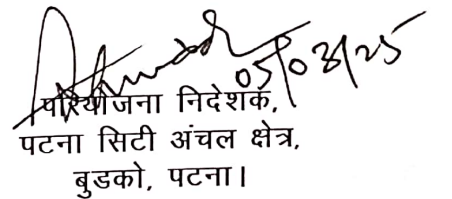 05/03/25
परियोजना निदेशक,
पटना सिटी अंचल क्षेत्र,
बुडको, पटना।